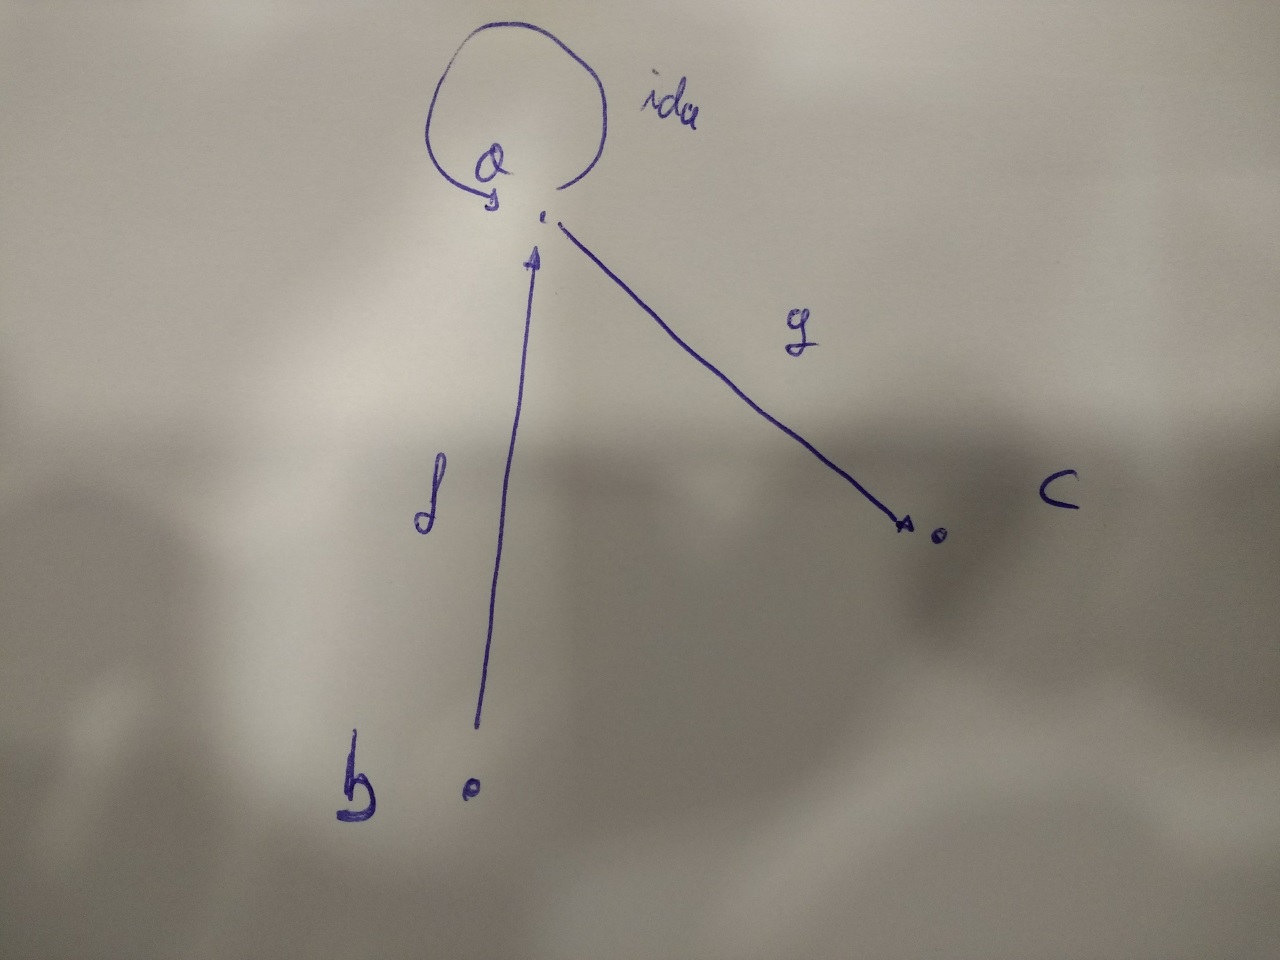 ida
a
g
f
c
b